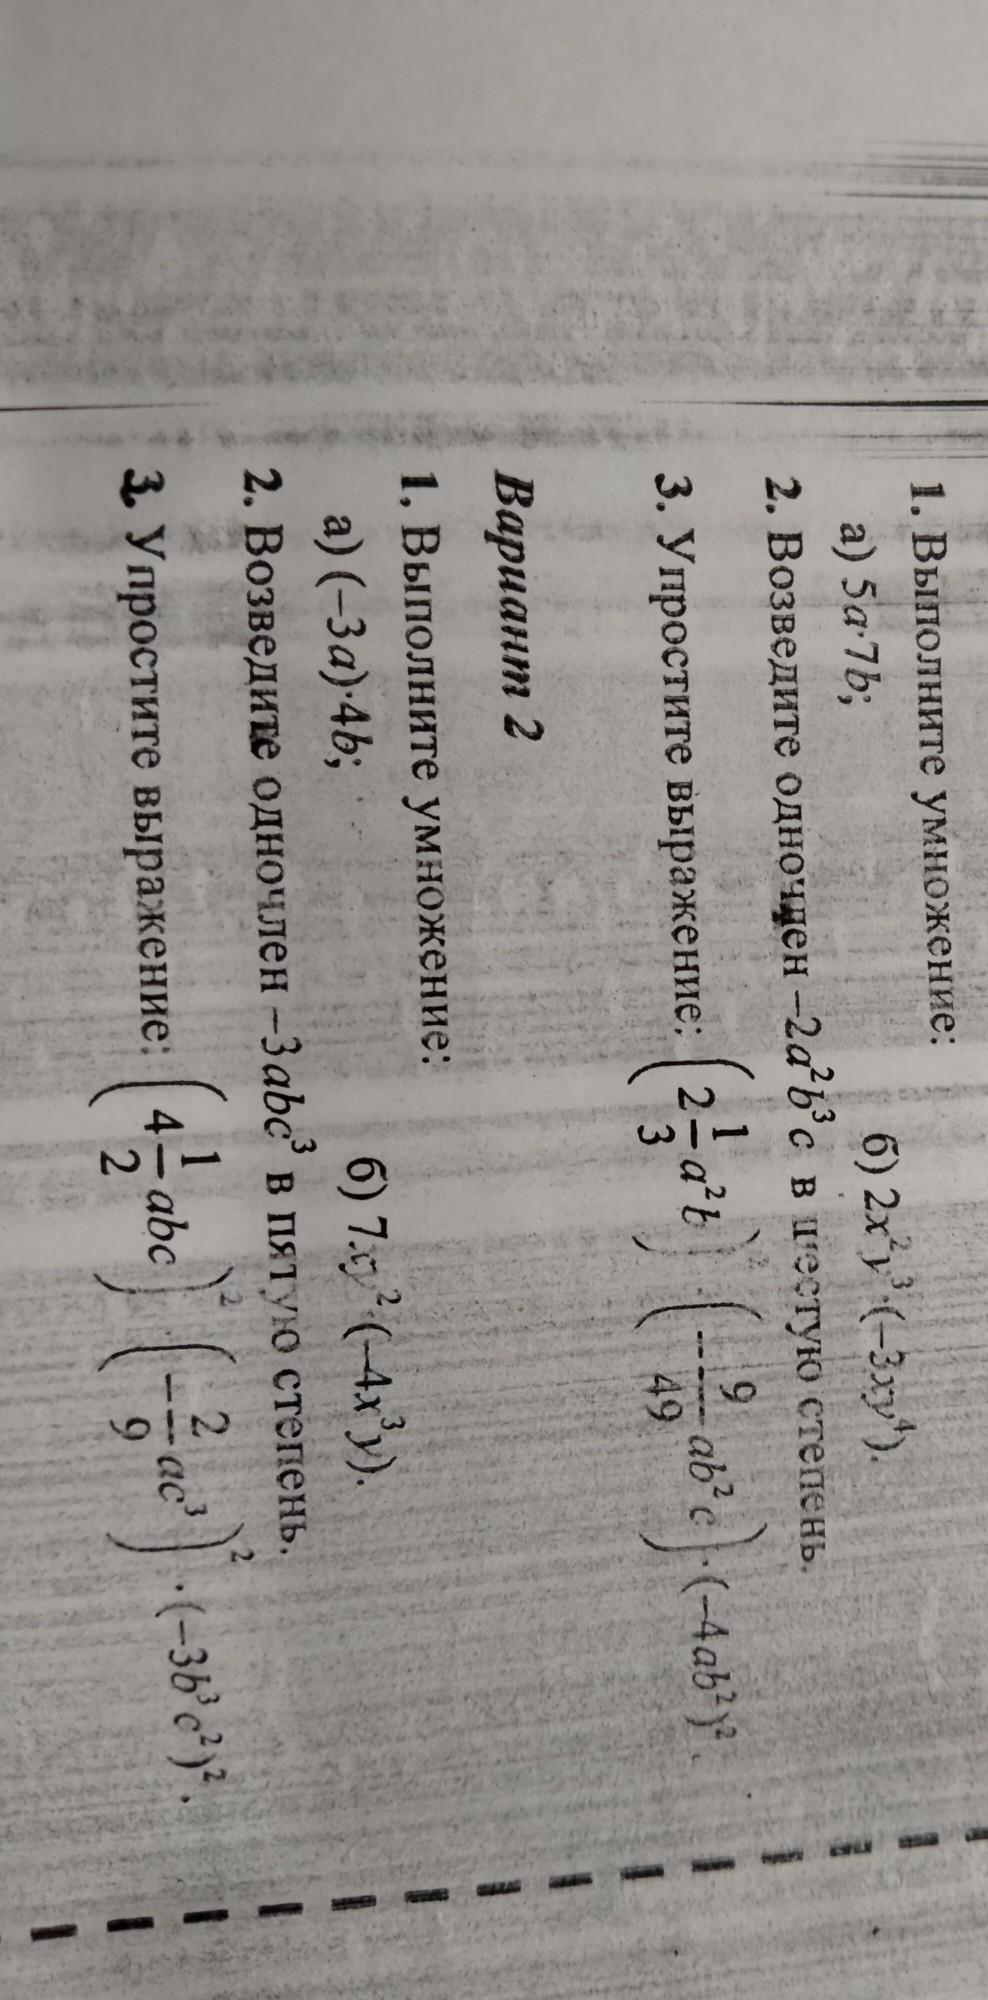 1. Выполните умножение:
а) 5a·7b; б) 2x²y³·(−3xy⁴).
2. Возведите одночлен −2a²b³c в шестую степень.
3. Упростите выражение: (2 1/3 a²b)² (−9/49 ab²c)·(−4ab²)².
Вариант 2
1. Выполните умножение:
а) (−3a)·4b; б) 7xy²·(−4x³y).
2. Возведите одночлен −3abc³ в пятую степень.
3. Упростите выражение: (4 1/2 abc)² (−2/9 ac³)² ·(−3b³c²)².